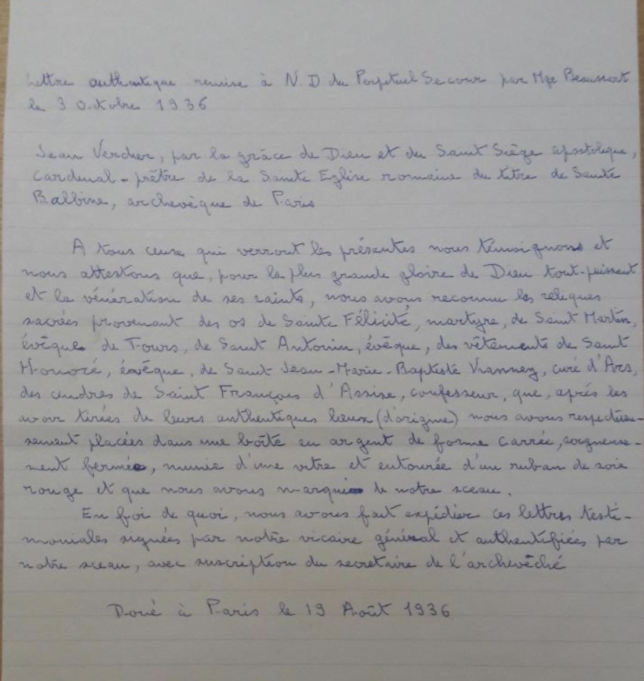 Lettre authentique remise à N.D du Perpetuel Secour par Mgr Beaussart
le 3 Octobre 1936
Jean Verdier, par la grâce de Dieu et du Saint Siège apostolique,
Cardinal-prêtre de la Sainte Eglise romaine du titre de Sainte
Balbine, archevêque de Paris
A tous ceux qui verront les présentes nous témoignons et
nous attestons que, pour la plus grande gloire de Dieu tout-puissant
et la vénération de ses saints, nous avons reconnu les reliques
sacrées provenant des os de Sainte Félicité, martyre, de Saint Martin,
évêque de Tours, de Saint Antonin, évêque, des vêtements de Saint
Honoré, évêque, de Saint Jean-Marie-Baptiste Vianney, curé d'Ars,
des cendres de Saint François d'Assise, confesseur, que, après les
avoir tirées de leurs authentiques lieux (d'origine) nous avons respectueu-
sement placées dans une boîte en argent de forme carrée, soigneuse-
ment fermée, munie d'une vitre et entourée d'un ruban de soie
rouge et que nous avons marquée de notre sceau.
En foi de quoi, nous avons fait expédier ces lettres testi-
moniales signées par notre vicaire général et authentifiées par
notre sceau, avec suscription du secretaire de l'archevêché
Donné à Paris le 19 Août 1936